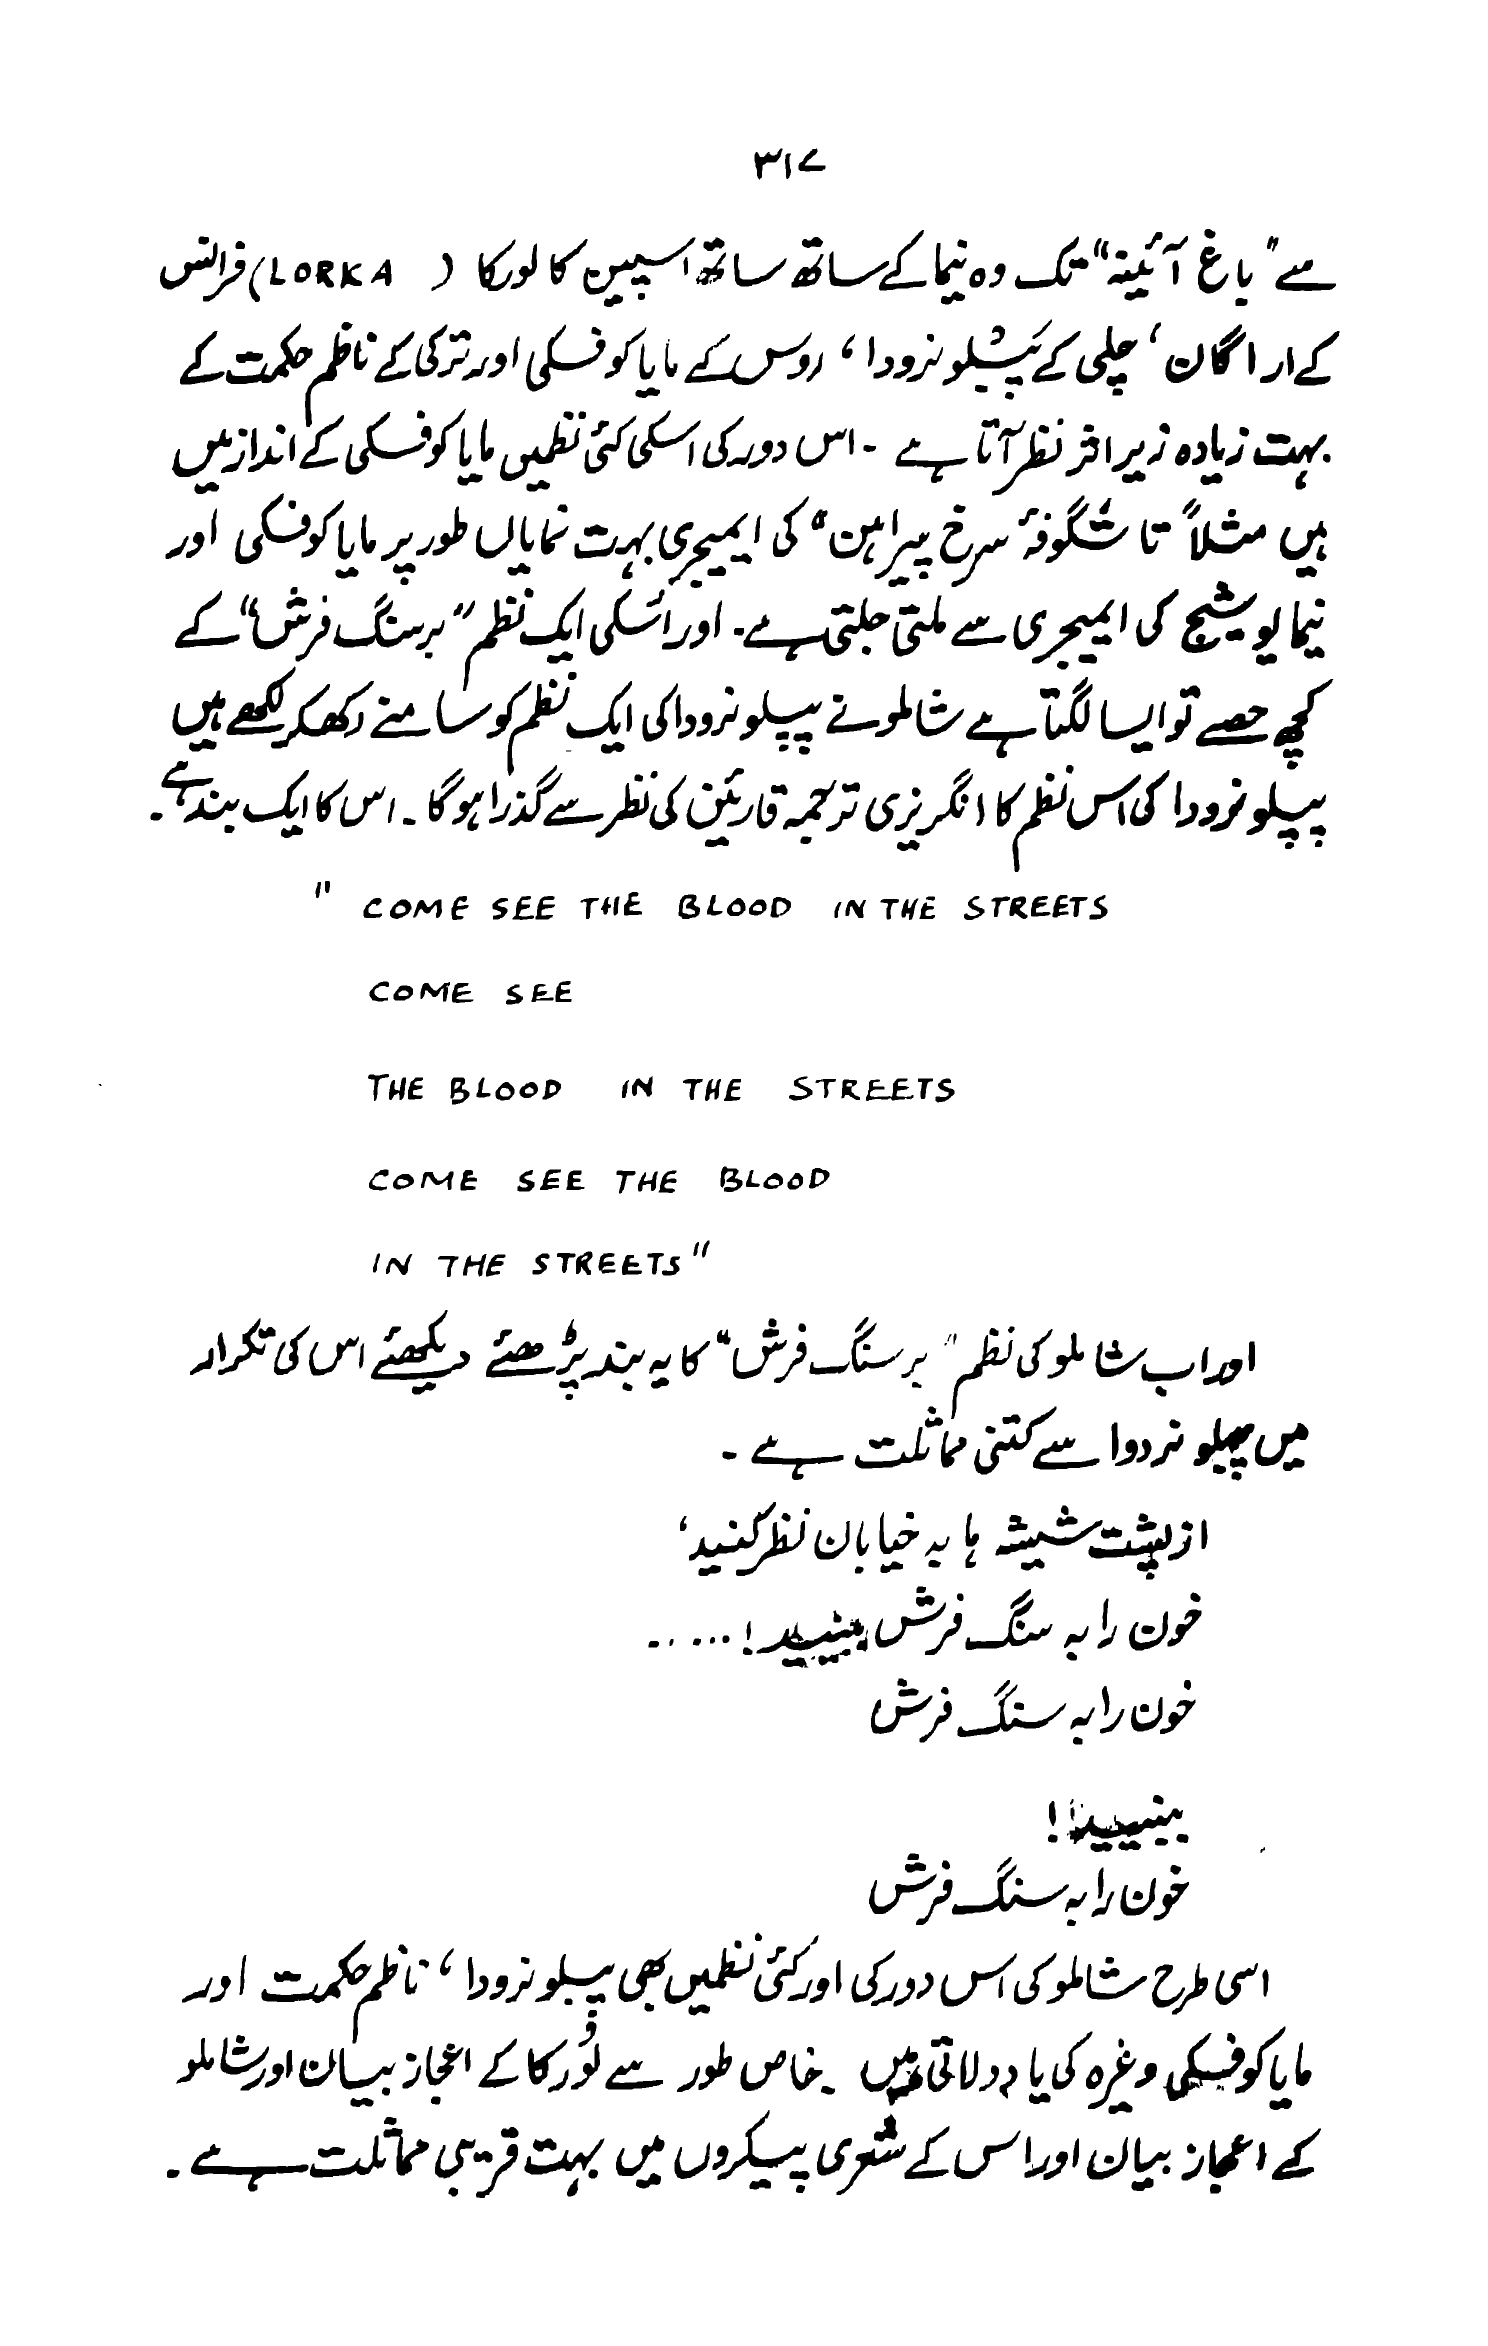 ۳۱۷
سے "باغ آئینہ" تک وہ نیما کے ساتھ ساتھ اسپین کا لورکا ( LORKA) فرانس
کے اراگان، چلی کے پیبلو نرودا، روس کے مایا کوفسکی اور ترکی کے ناظم حکمت کے
بہت زیادہ زیر اثر نظر آتا ہے ۔ اس دور کی اسکی کئی نظمیں مایا کوفسکی کے انداز میں
ہیں مثلاً "تا شگوفۂ سرخ پیراہن" کی ایمیجری بہت نمایاں طور پر مایا کوفسکی اور
نیما یوشیج کی ایمیجری سے ملتی جلتی ہے۔ اور اُسکی ایک نظم "برسنگ فرش" کے
کچھ حصے تو ایسا لگتا ہے شاملو نے پیبلو نرودا کی ایک نظم کو سامنے رکھکر لکھے ہیں
پیبلو نرودا کی اس نظم کا انگریزی ترجمہ قارئین کی نظر سے گذرا ہوگا ۔ اس کا ایک بند ہے ۔
" COME SEE THE BLOOD IN THE STREETS
COME SEE
THE BLOOD IN THE STREETS
COME SEE THE BLOOD
IN THE STREETS"
اور اب شاملو کی نظم "برسنگ فرش" کا یہ بند پڑھئے دیکھئے اس کی تکرار
میں پیبلو نردوا سے کتنی مماثلت ہے ۔
از پشت شیشہ ہا بہ خیابان نظر کنید،
خون را بہ سنگ فرش ببینید! .....
خون را بہ سنگ فرش
ببینید!
خون را بہ سنگ فرش
اسی طرح شاملو کی اس دور کی اور کئی نظمیں بھی پیبلو نرودا، ناظم حکمت اور
مایا کوفسکی وغیرہ کی یاد دلاتی ہیں ۔ خاص طور سے لورکا کے اعجاز بیان اور شاملو
کے اعجاز بیان اور اس کے شعری پیکروں میں بہت قریبی مماثلت ہے ۔